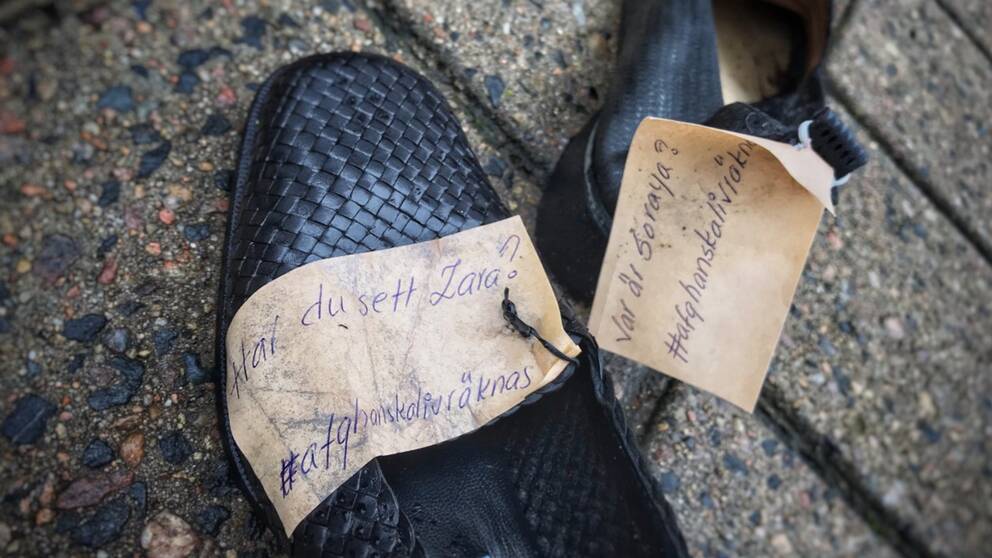 Har du sett Zara?
#afghanskalivräknas
Var är Soraya?
#afghanskalivräkn